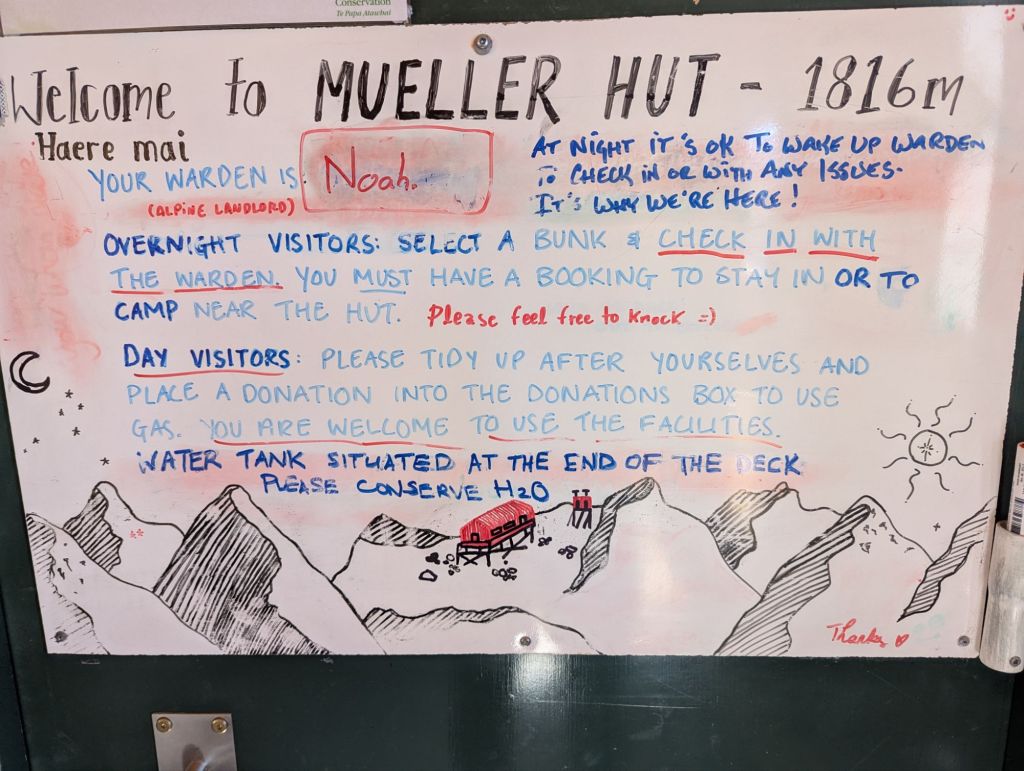 Conservation
Te Papa Atawhai
Welcome to MUELLER HUT - 1816m
Haere mai
YOUR WARDEN IS: Noah.
(ALPINE LANDLORD)
AT NIGHT IT'S OK TO WAKE UP WARDEN
TO CHECK IN OR WITH ANY ISSUES.
IT'S WHY WE'RE HERE!
OVERNIGHT VISITORS: SELECT A BUNK & CHECK IN WITH
THE WARDEN. YOU MUST HAVE A BOOKING TO STAY IN OR TO
CAMP NEAR THE HUT. Please feel free to knock =)
DAY VISITORS: PLEASE TIDY UP AFTER YOURSELVES AND
PLACE A DONATION INTO THE DONATIONS BOX TO USE
GAS. YOU ARE WELCOME TO USE THE FACILITIES.
WATER TANK SITUATED AT THE END OF THE DECK
PLEASE CONSERVE H2O
Thanks